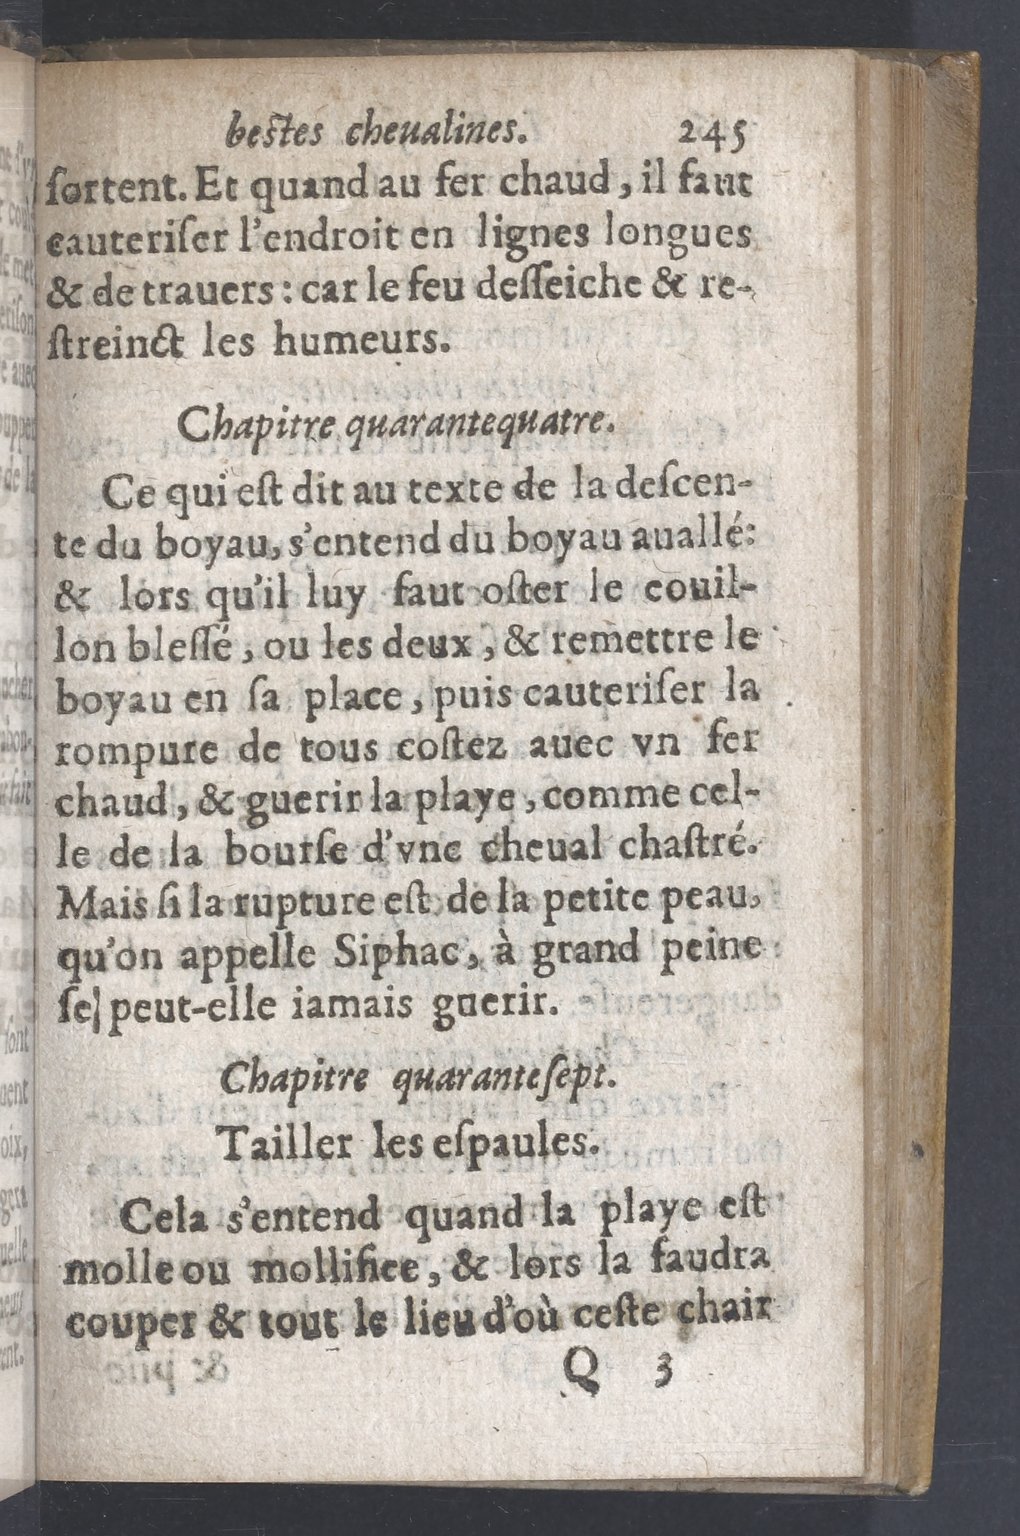 bestes cheualines. 245
ſortent. Et quand au fer chaud, il faut
cauteriſer l'endroit en lignes longues
& de trauers : car le feu deſſeiche & re-
ſtreinct les humeurs.
Chapitre quarantequatre.
Ce qui eſt dit au texte de la deſcen-
te du boyau, s'entend du boyau auallé:
& lors qu'il luy faut oſter le couil-
lon bleſſé, ou les deux, & remettre le
boyau en ſa place, puis cauteriſer la
rompure de tous coſtez auec vn fer
chaud, & guerir la playe, comme cel-
le de la bourſe d'vne cheual chaſtré.
Mais ſi la rupture eſt de la petite peau,
qu'on appelle Siphac, à grand peine
ſe peut-elle iamais guerir.
Chapitre quaranteſept.
Tailler les eſpaules.
Cela s'entend quand la playe eſt
molle ou mollifiee, & lors la faudra
couper & tout le lieu d'où ceſte chair
Q 3